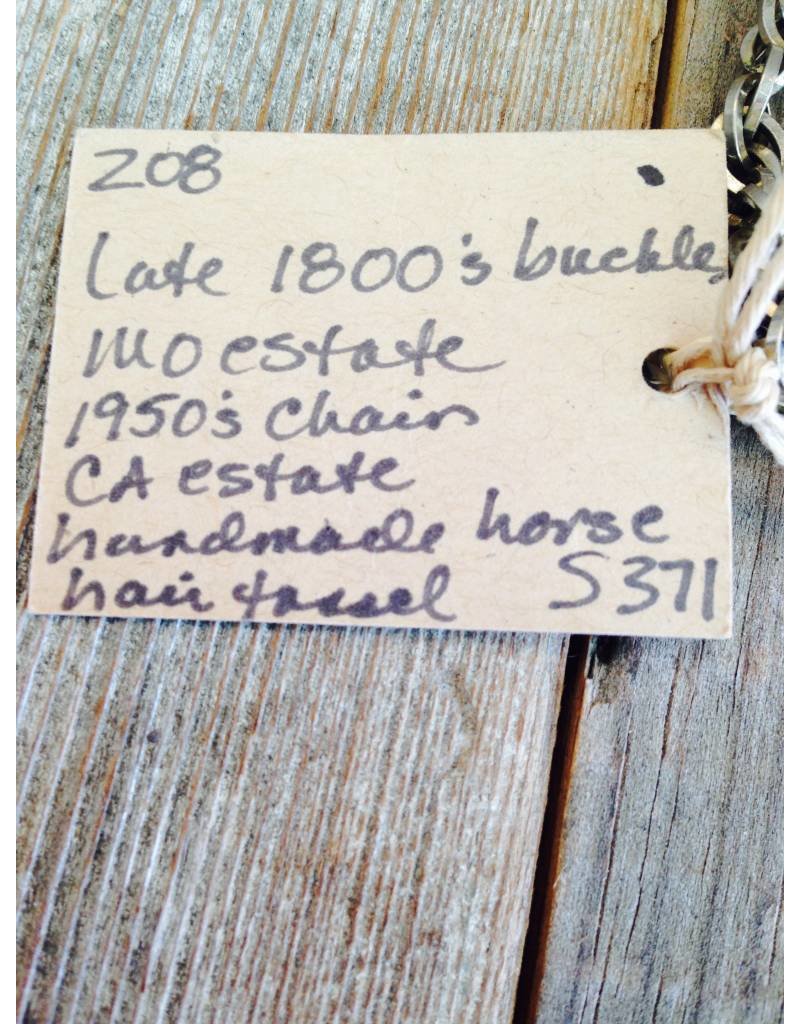 208
late 1800's buckles
MO estate
1950's Chain
CA estate
handmade horse
hair tassel S371